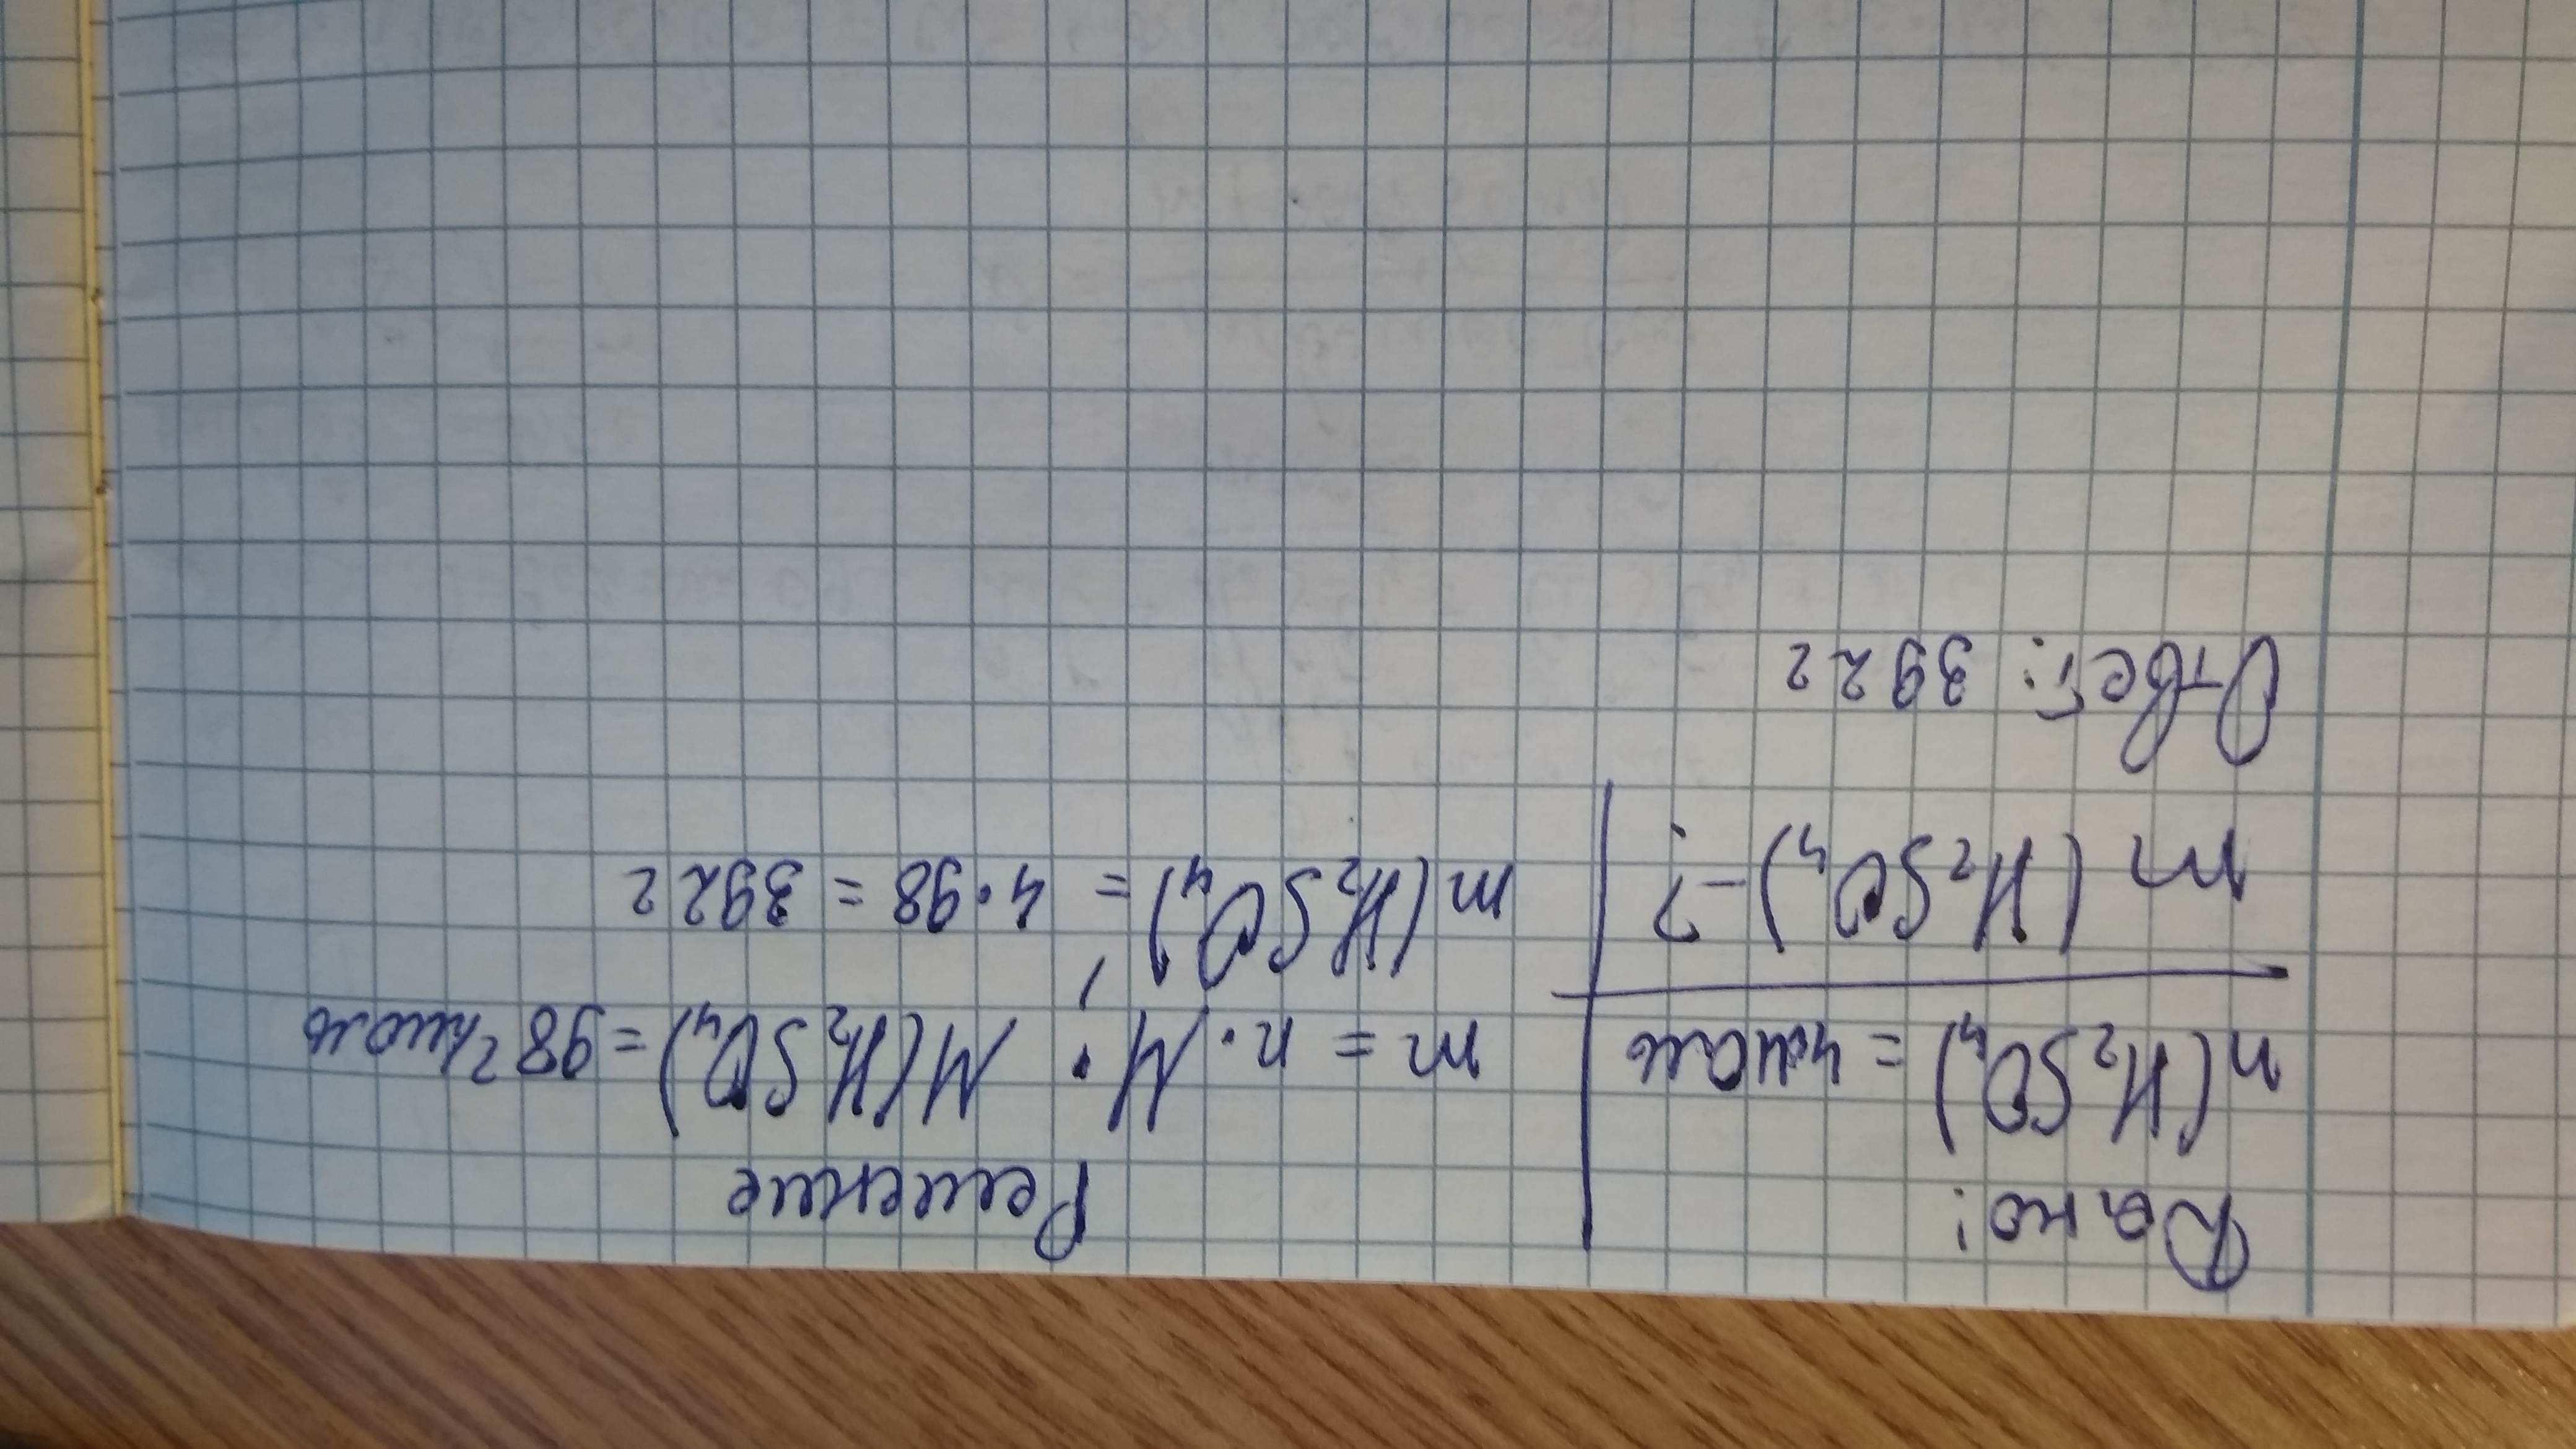 Дано:
n(H₂SO₄) = 4моль
m (H₂SO₄) - ?
Решение
m = n · M; M(H₂SO₄) = 98 г/моль
m(H₂SO₄) = 4 · 98 = 392г
Ответ: 392г